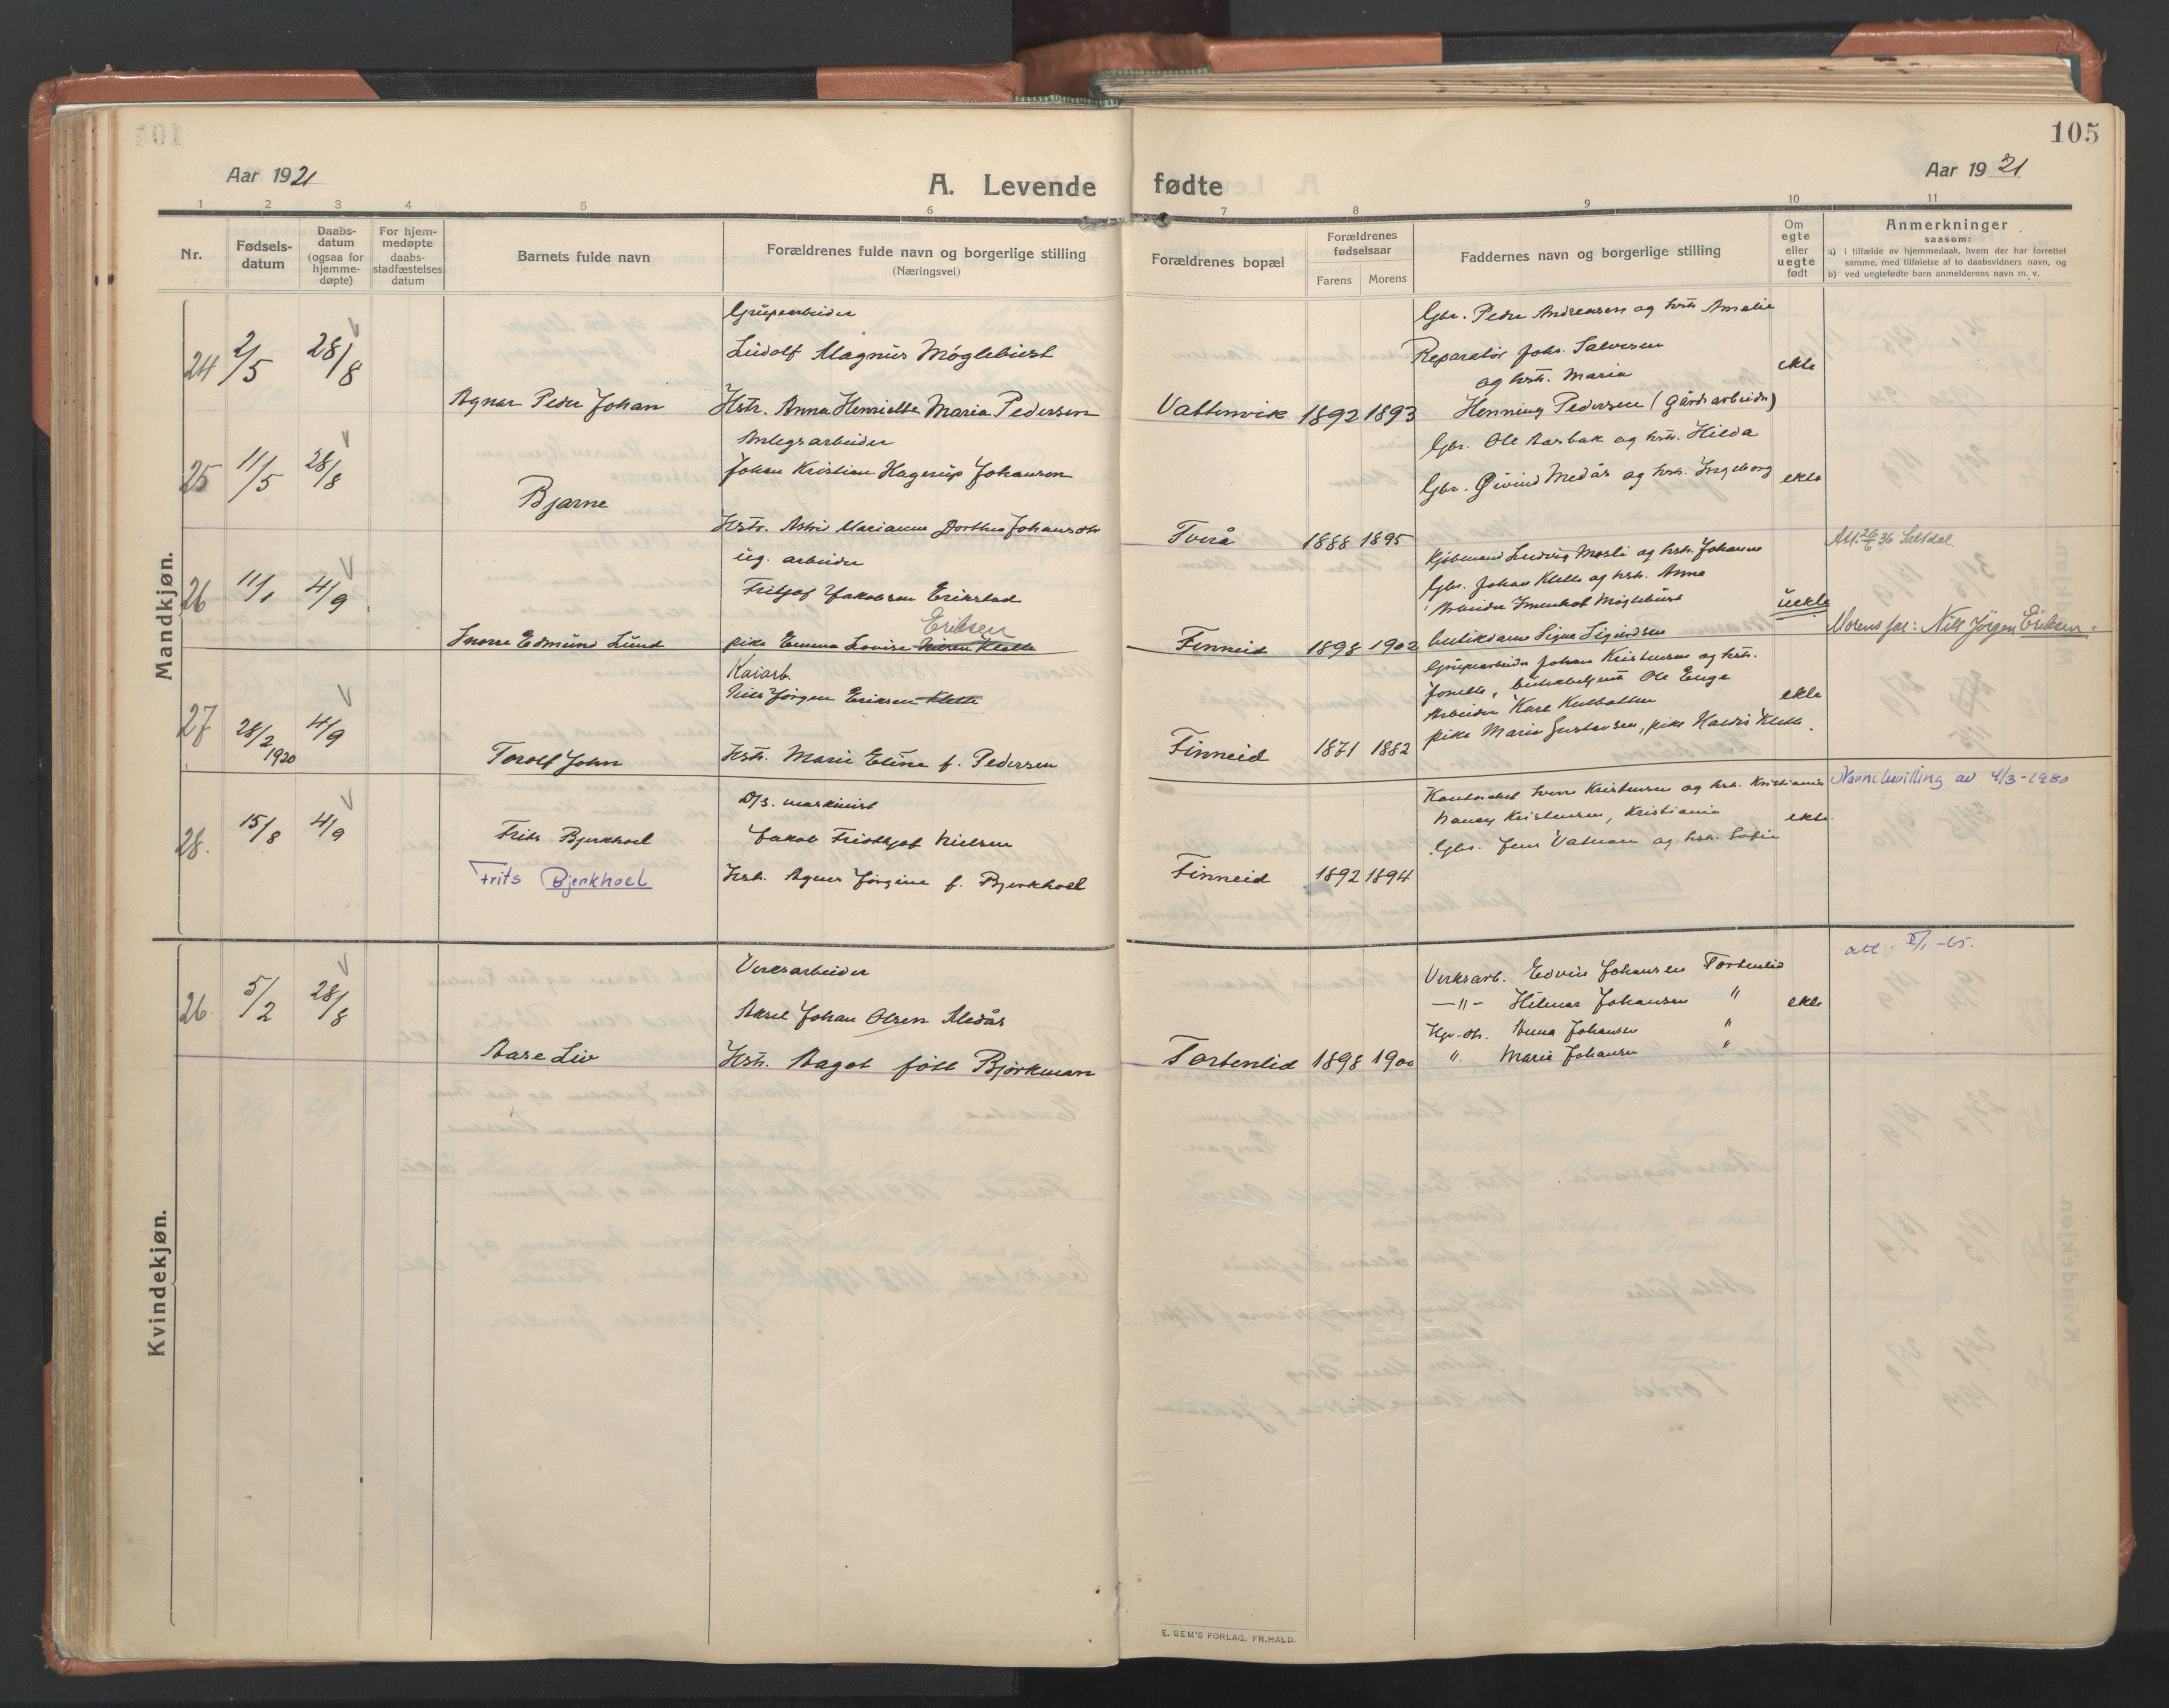 105
Aar 1921
A. Levende fødte
Aar 1921
1 2 3 4 5 6 7 8 9 10 11
Nr.
Fødsels-
datum
Daabs-
datum
(ogsaa for
hjemme-
døpte)
For hjem-
medøpte
daabs-
stadfæstelses
datum
Barnets fulde navn
Forældrenes fulde navn og borgerlige stilling
(Næringsvei)
Forældrenes bopæl
Forældrenes
fødselsaar
Farens Morens
Faddernes navn og borgerlige stilling
Om
egte
eller
uegte
født
Anmerkninger
saasom:
a) i tilfælde av hjemmedaab, hvem der har forrettet
samme, med tilføielse af to daabsvidners navn, og
b) ved uegtefødte barn anmelderens navn m. v.
Mandkjøn.
24 2/5 28/8
Agnar Peder Johan
Grubearbeider
Ludolf Magnus Møglebust
Hstr. Anna Henriette Maria Pedersen
Vattenvik 1892 1893
Gbr. Peder Andreassen og hstr. Amalie
Reparatør Johs. Salvesen
og hstr. Maria
Henning Pedersen (Gårdsarbeider)
ekte
25 11/5 28/8
Bjarne
Anlegsarbeider
Johan Kristian Hagerup Johansen
Hstr. Astrid Marianne Dorthea Johansdtr
Tverå 1888 1895
Gbr. Ole Aasbak og hstr. Hilda
Gbr. Øivind Medås og hstr. Ingeborg
ekte
26 11/1 4/9
Snorre Edmund Lund
ug. arbeider
Fritjof Jakobsen Erikstad
Eriksen
pike Emma Lovise Klette
Finneid 1898 1902
Kjøbmand Ludvig Mosli og hstr. Johanne
Gbr. Johan Klette og hstr. Anna
Arbeider Møglebust
butikdame Signe Sigurdsen
uekte
Att. 36 Saltdal
Morens far: Nils Jörgen Eriksen
27 28/2 1920 4/9
Torolf John
Kaiarb.
Nils Jörgen Eriksen Klette
Hstr. Marie Eline f. Pedersen
Finneid 1871 1882
Grubearbeider Johan Kristensen og hstr.
Jonette, Ole Enge
Arbeider Kare Kulbotten
pike Maria Gustavsen, pike Haldis Klette.
ekte
28. 15/8 4/9
Frits Bjerkhoel
Frits Bjerkhoel
D/s. maskinist
Jakob Fridthjof Nielsen
Hstr. Agnes Jørgine f. Bjerkhoel
Finneid 1892 1894
Kontorchef Sverre Kristensen og hstr. Kristiania
Nancy Kristensen, Kristiania
Gbr. Jens Vatnan og hstr. Sofie
ekte
Navnebevilling av 4/3-1980
Kvindekjøn.
26. 5/2 28/8
Aase Liv
Verksarbeider
Aksel Johan Olsen Medås
Hstr. Dagot født Björkman
Tortenlid 1898 1900
Verksarb. Edvin Johansen Tortenlid
—"— Hilmar Johansen "
Anna Johansen "
" Marie Johansen "
ekte
att. -65.
E. SEM'S FORLAG, FR.HALD.